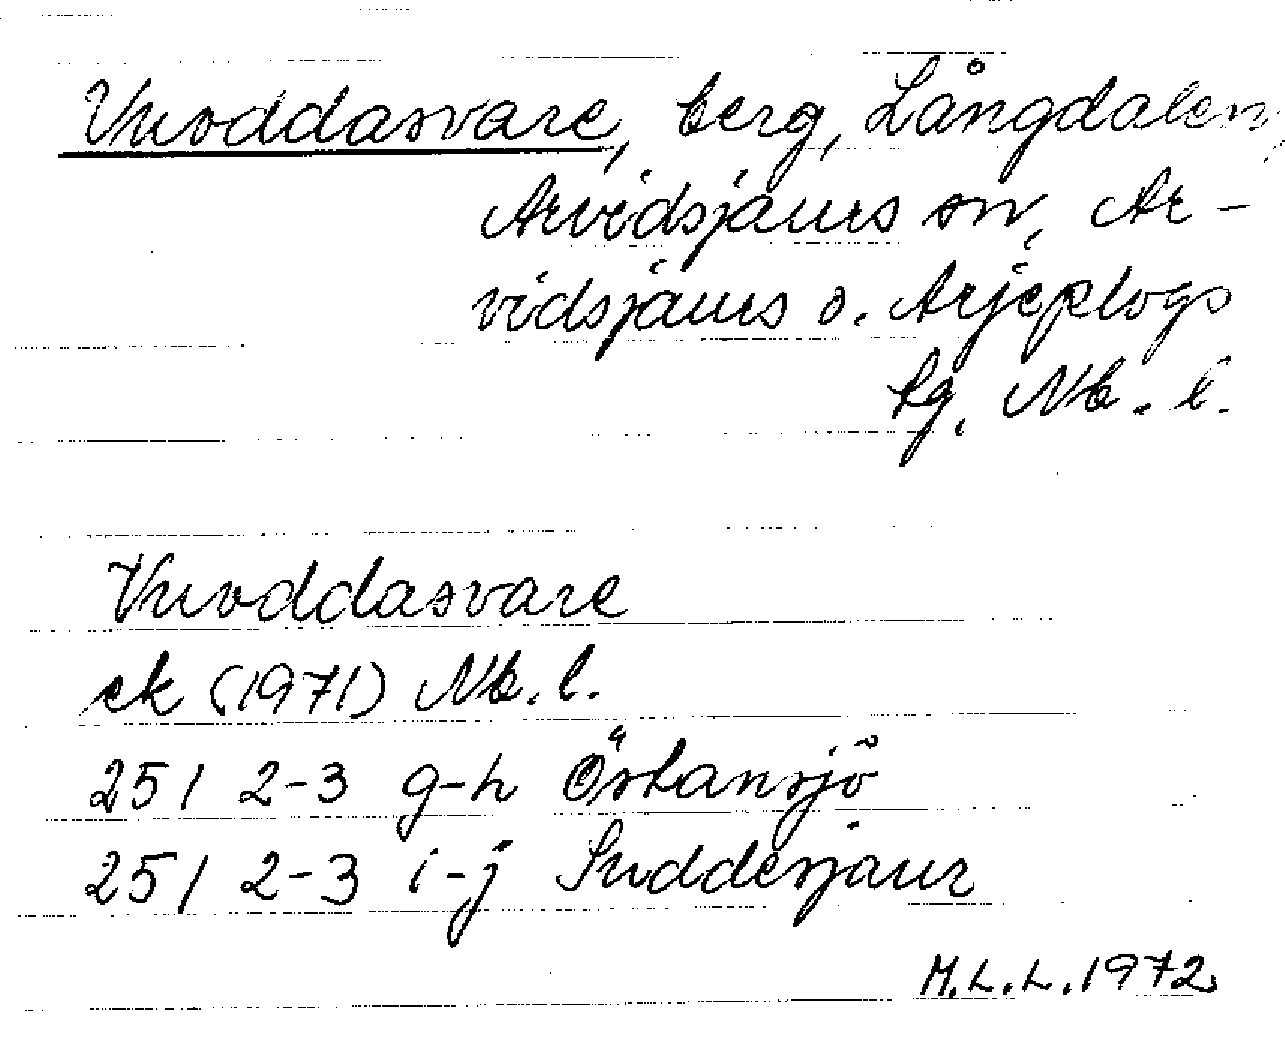 Vuoddasvare, berg, Långdalen,
Arvidsjaurs sn, Ar-
vidsjaurs o. Arjeplogs
lg, Nb. l.
Vuoddasvare
ek (1971) Nb. l.
25 I 2-3 g-h Östansjö
25 I 2-3 i-j Suddesjaur
M.L.L. 1972